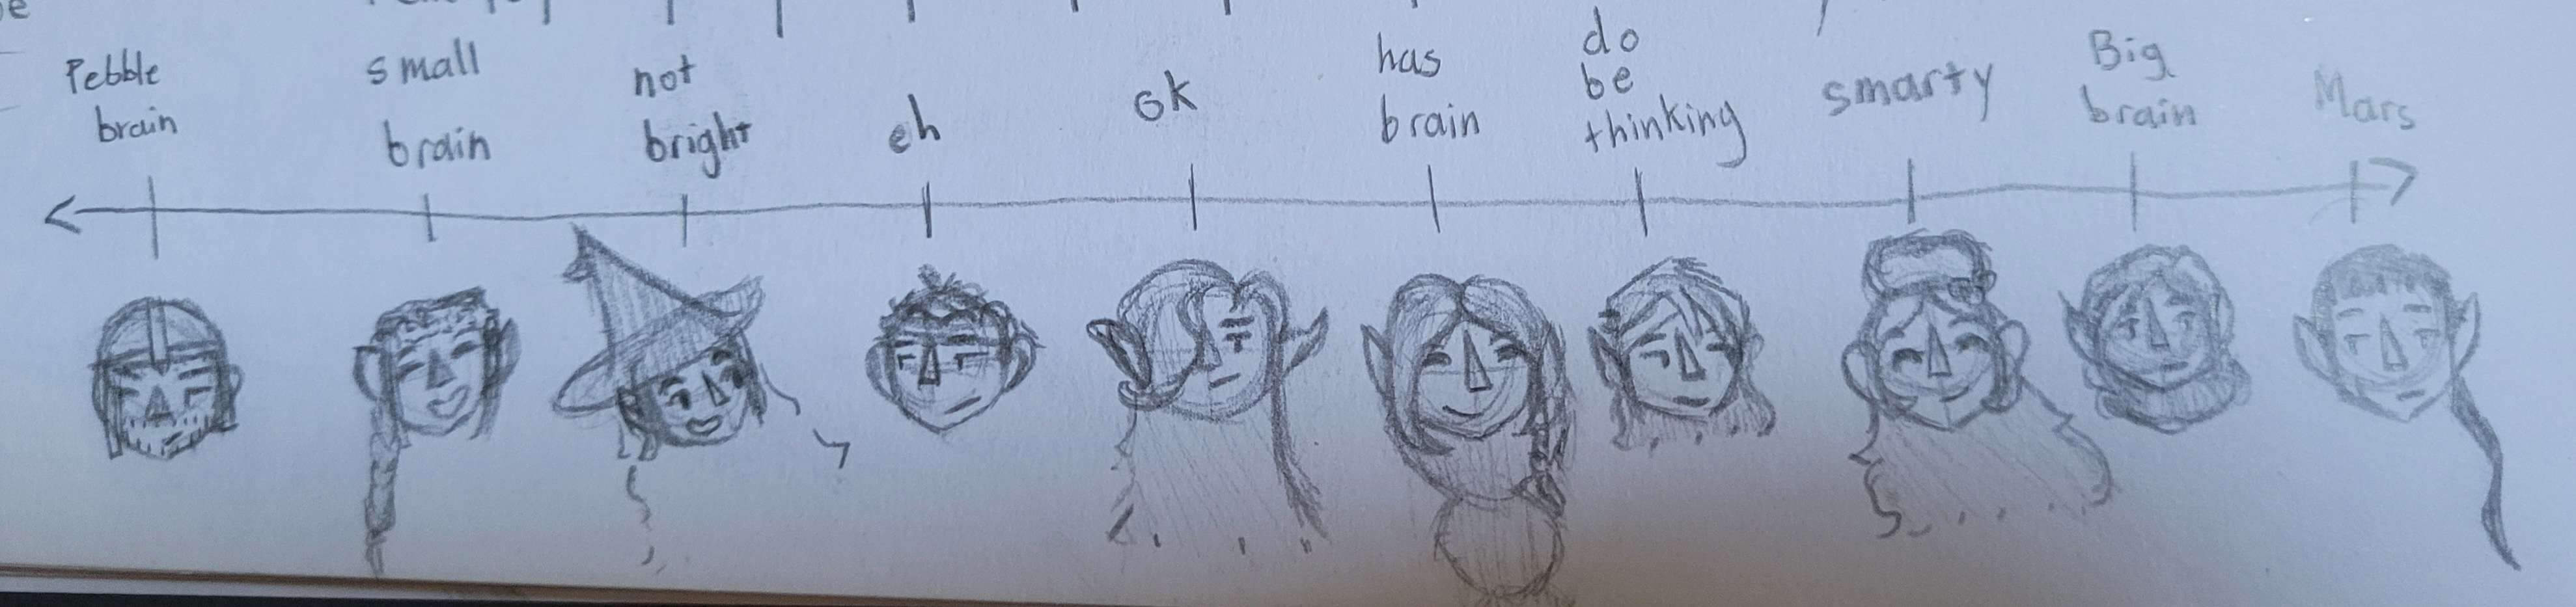 Pebble
brain
small
brain
not
bright
eh
ok
has
brain
do
be
thinking
smarty
Big
brain
Mars